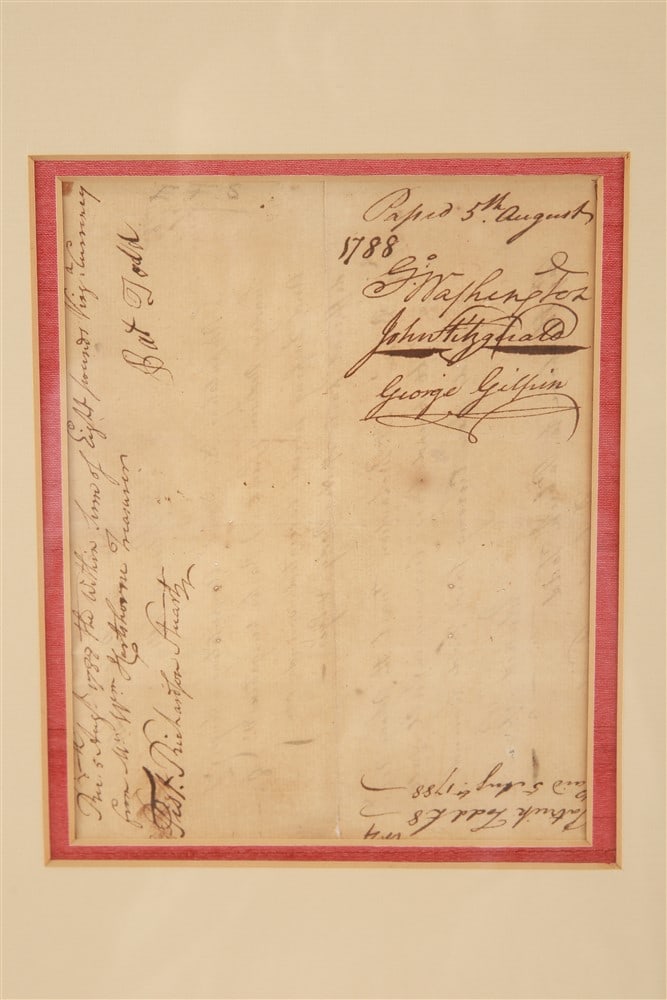 Passd 5th. August
1788
Go. Washington
John Fitzgerald
George Gilpin
Recd. 5 Augt. 1788 the within Sum of Eight pounds Virga Currency
from Mr. Wm Hartshorne Treasurer
Pat Todd
Test. Richardson Stuart
Patrick Todd £8
Paid 5 Augt. 1788